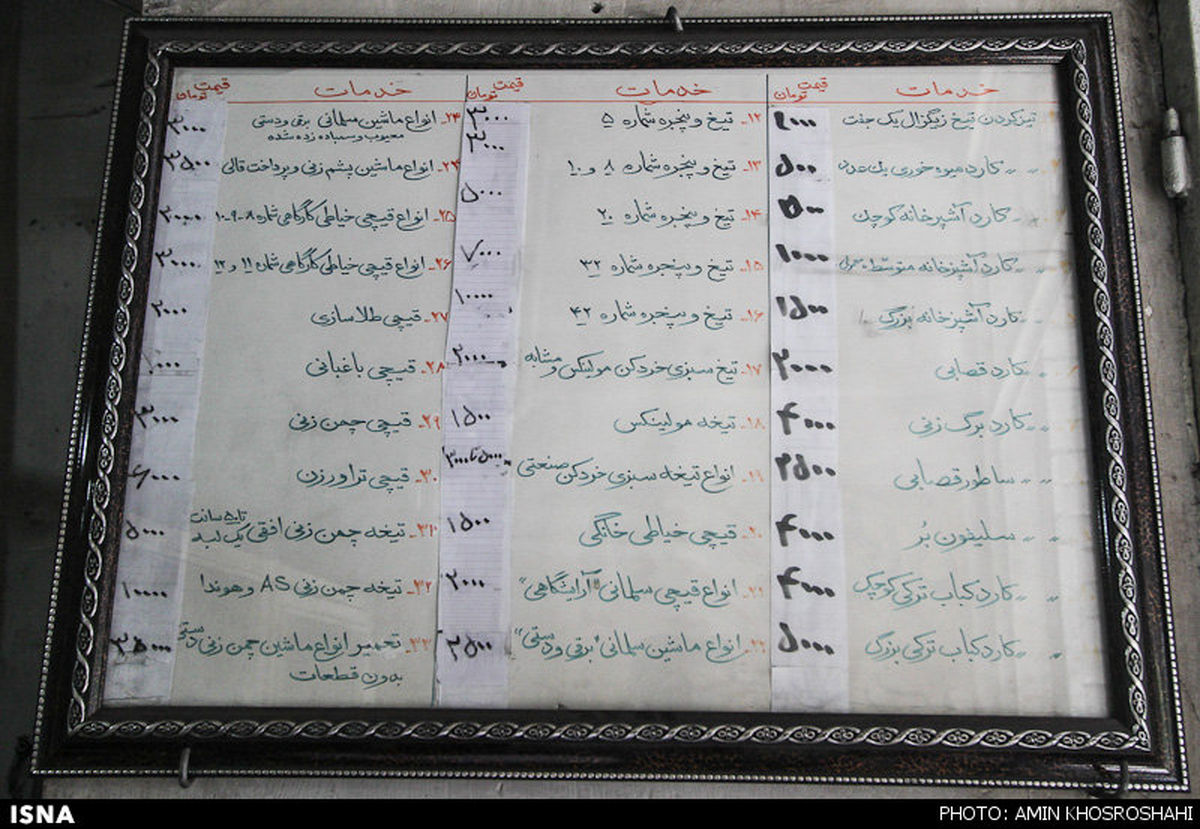 خدمات قیمت تومان
تیزکردن تیغ زیگزال یک جفت ۲۰۰۰
〃 〃 کارد میوه خوری یک عدد ۵۰۰
〃 〃 کارد آشپزخانه کوچک ۵۰۰
〃 〃 کارد آشپزخانه متوسط ۱۰۰۰
〃 〃 کارد آشپزخانه بزرگ ۱۵۰۰
〃 〃 کارد قصابی ۲۰۰۰
〃 〃 کارد برگ زنی ۴۰۰۰
〃 〃 ساطور قصابی ۲۵۰۰
〃 〃 سلیفون بُر ۴۰۰۰
〃 〃 کارد کباب ترکی کوچک ۴۰۰۰
〃 〃 کارد کباب ترکی بزرگ ۵۰۰۰
خدمات قیمت تومان
۱۲ـ تیغ و پنجره شماره ۵ ۳۰۰۰
۳۰۰۰
۱۳ـ تیغ و پنجره شماره ۸ و ۱۰
۵۰۰۰
۱۴ـ تیغ و پنجره شماره ۲۰
۱۵ـ تیغ و پنجره شماره ۳۲ ۷۰۰۰
۱۶ـ تیغ و پنجره شماره ۴۲ ۱۰۰۰۰
۱۷ـ تیغ سبزی خردکن مولینکس و مشابه ۲۰۰۰
۱۸ـ تیغه مولینکس ۱۵۰۰
۱۹ـ انواع تیغه سبزی خردکن صنعتی
۲۰ـ قیچی خیاطی خانگی ۱۵۰۰
۲۱ـ انواع قیچی سلمانی "آرایشگاهی" ۲۰۰۰
۲۲ـ انواع ماشین سلمانی "برقی و دستی" ۲۵۰۰
خدمات قیمت تومان
۲۴ـ انواع ماشین سلمانی برقی و دستی ۳۰۰۰
معیوب و سمباده زده شده
۲۴ـ انواع ماشین پشم زنی و پرداخت قالی ۳۵۰۰
۲۵ـ انواع قیچی خیاطی کارگاهی شماره ۸-۹-۱۰ ۲۰۰۰
۲۶ـ انواع قیچی خیاطی کارگاهی شماره ۱۱ و ۱۲ ۳۰۰۰
۲۷ـ قیچی طلاسازی ۲۰۰۰
۲۸ـ قیچی باغبانی
۲۹ـ قیچی چمن زنی ۳۰۰۰
۳۰ـ قیچی تراورزن ۶۰۰۰
۳۱ـ تیغه چمن زنی افقی یک لبه تا ۵۰ سانت ۵۰۰۰
۳۲ـ تیغه چمن زنی AS و هوندا ۱۰۰۰۰
۳۳ـ تعمیر انواع ماشین چمن زنی دستی ۳۵۰۰۰
بدون قطعات
ISNA
PHOTO: AMIN KHOSROSHAHI